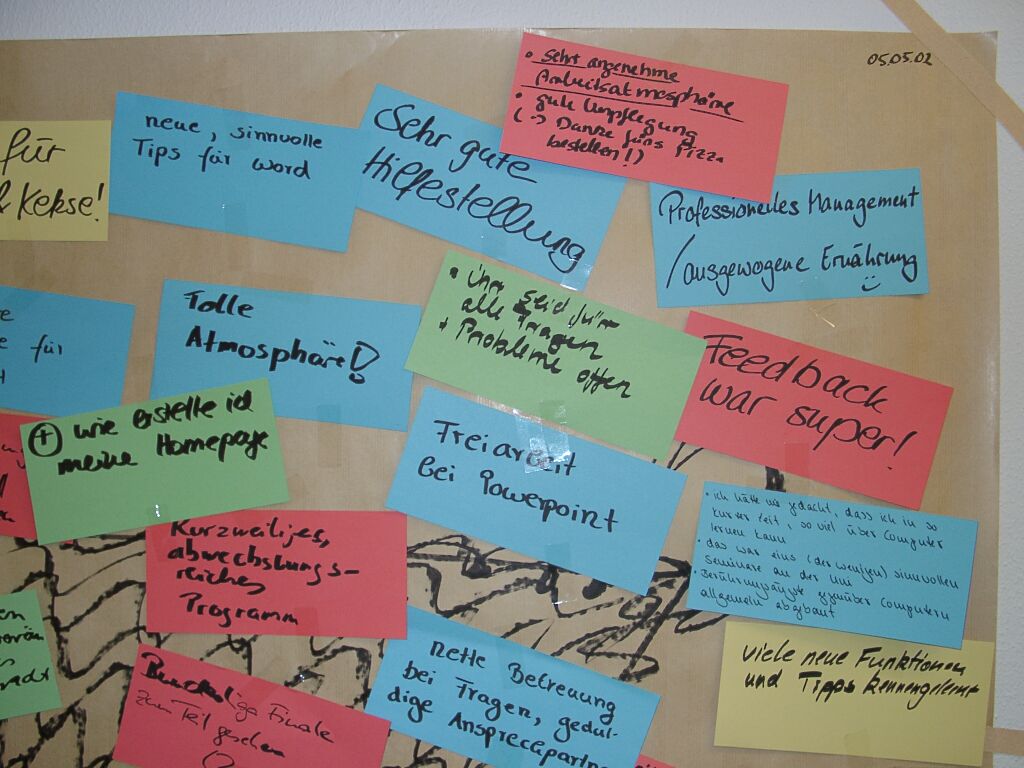 05.05.02
für
& Kekse!
neue, sinnvolle
Tips für word
Sehr gute
Hilfestellung
• sehr angenehme
Arbeitsatmosphäre
• gute Verpflegung
(-> Danke fürs Pizza
bestellen!)
Professionelles Management
/ausgewogene Ernährung
e
e für
Tolle
Atmosphäre!
• Ihr seid für
alle Fragen
+ Probleme offen
Feedback
war super!
+ wie erstelle ich
meine Homepage
Freiarbeit
bei Powerpoint
• ich hätte nie gedacht, dass ich in so
kurzer Zeit, so viel über Computer
lernen kann
• das war eins (der wenigen) sinnvollen
Seminare an der Uni
Berührungsängste gegenüber Computern
allgemein abgebaut
Kurzweiliges,
abwechslungs-
reiches
Programm
en
Bundesliga Finale
zum Teil gesehen
nette Betreuung
bei Fragen, gedul-
dige Ansprechpartne
viele neue Funktionen
und Tipps kennengelernt